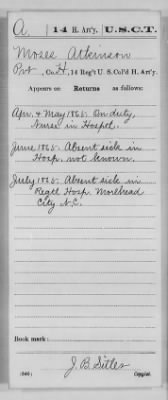 A. | 14 H. Art'y. | U.S.C.T.
Moses Atkinson
Pvt, Co. H, 14 Reg't U. S. Col'd H. Art'y.
Appears on Returns as follows:
Apr. & May 1865. On duty,
Nurse in Hospt.
June 1865. Absent sick in
Hosp. not known.
July 1865. Absent sick in
Regtl Hosp. Morehead
City N.C.
Book mark:
J. B. Sitler
(546) Copyist.